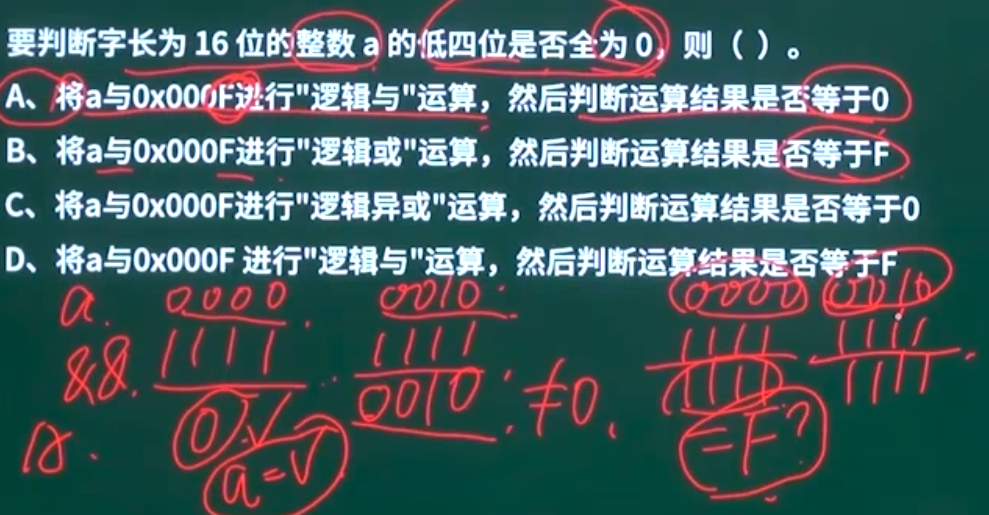 要判断字长为 16 位的整数 a 的低四位是否全为 0，则（ ）。
A、将a与0x000F进行"逻辑与"运算，然后判断运算结果是否等于0
B、将a与0x000F进行"逻辑或"运算，然后判断运算结果是否等于F
C、将a与0x000F进行"逻辑异或"运算，然后判断运算结果是否等于0
D、将a与0x000F 进行"逻辑与"运算，然后判断运算结果是否等于F
a. 0000 0010 0000 0010
&&. 1111 1111 1111 1111
0 ✓ 0010 ≠0. 1111 1111
a=✓ =F?